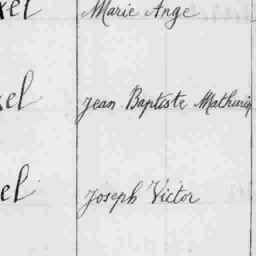 Marie Ange
Jean Baptiste Mathurin
Joseph Victor